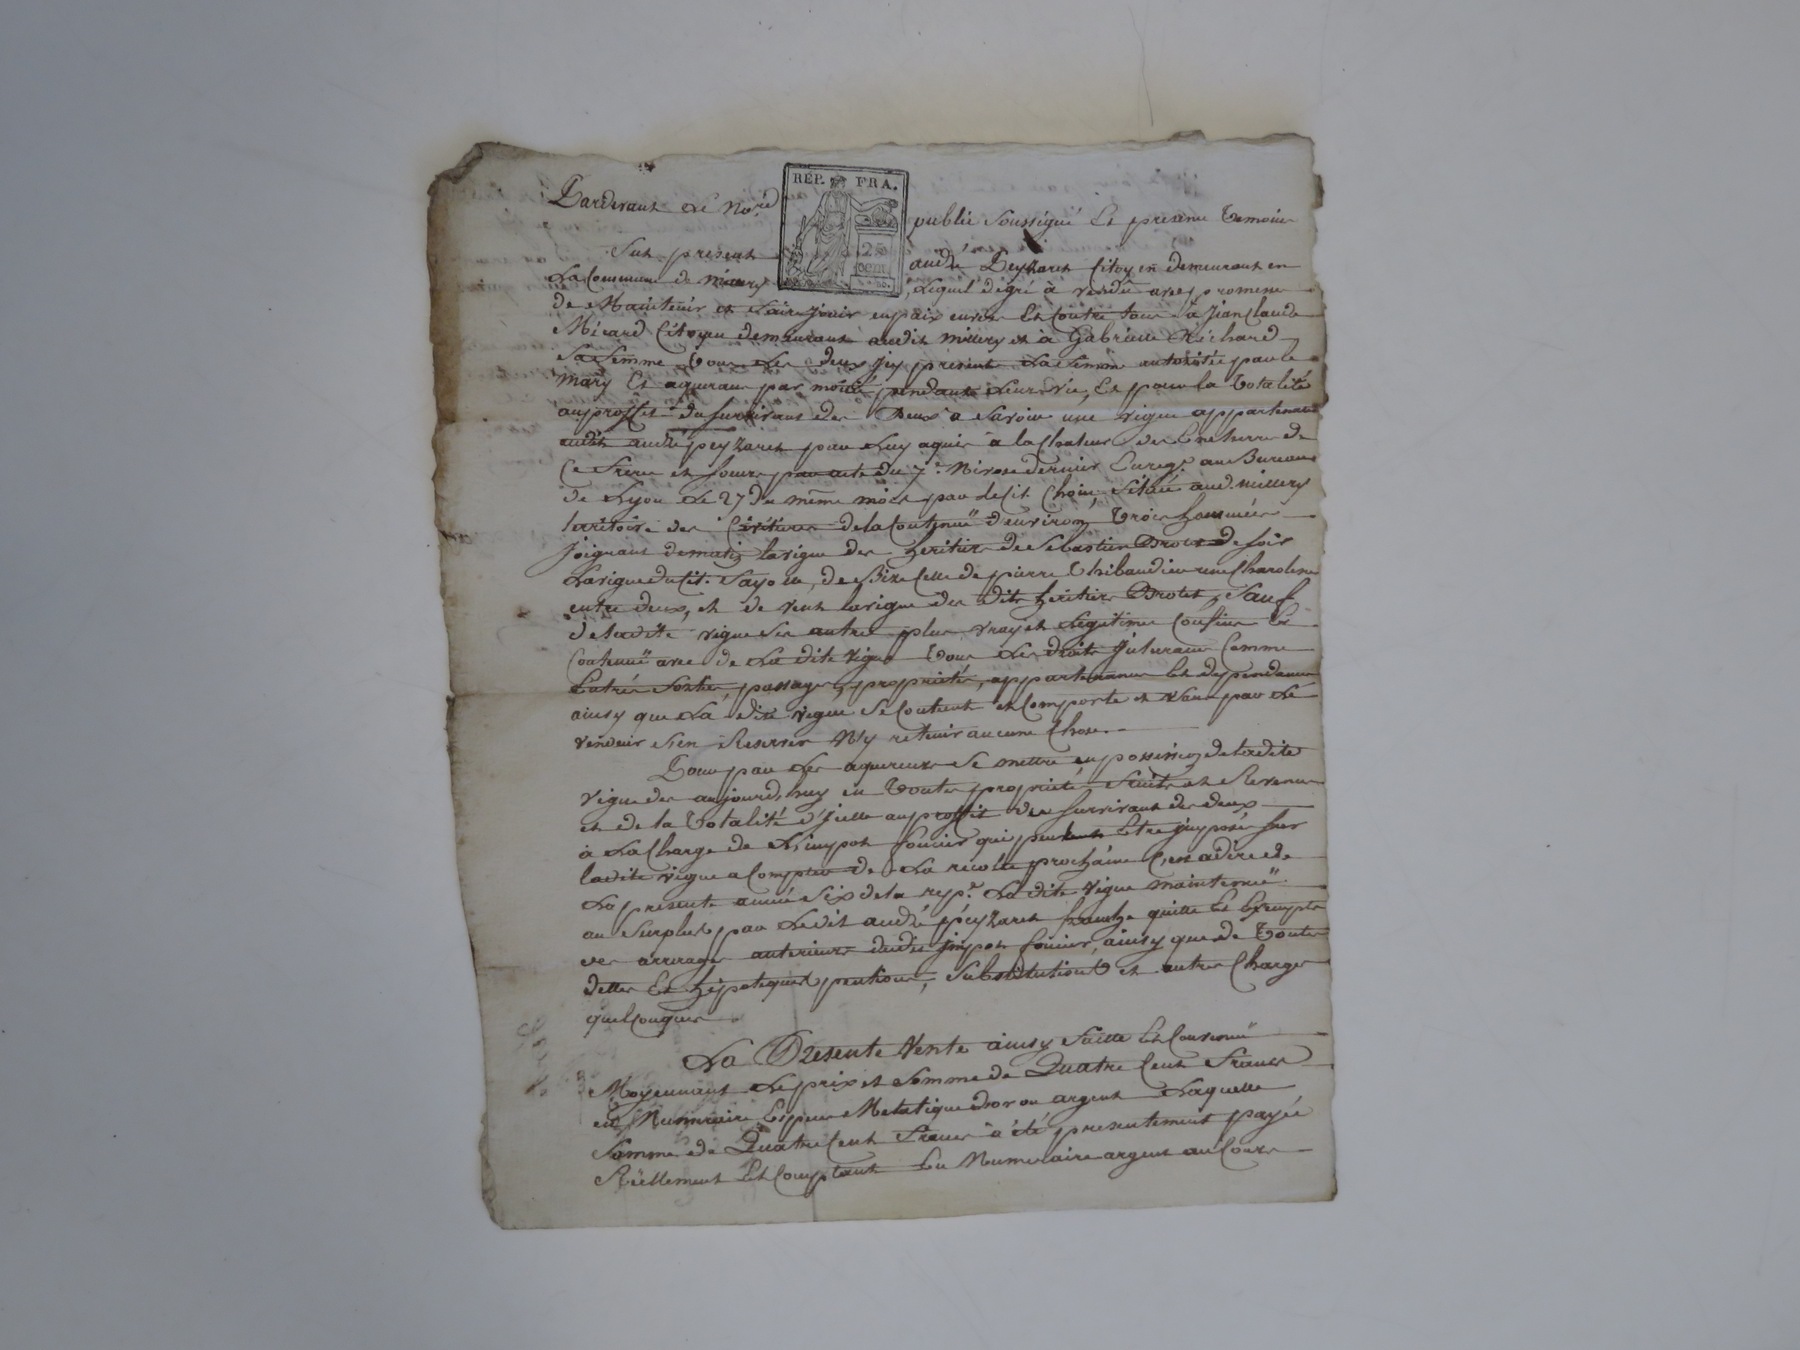 REP. FRA.
25
cent.
Pardevant Le No.re public Soussigné Et presens Temoins
Fut present andré Peyzaret Citoyen demeurant en
La Commune de millery, Lequel de gré à vendû avec promesse
de Maintenir et faire Jouir en paix envers Et Contre tous à Jean Claude
Micard Citoyen demeurant audit millery et à Gabrielle Richard
Sa femme Tous Les deux Jcy presents La femme authorisée par le
mary Et aquereurs par moitié pendant Leur vie, Et pour la Totalité
au proffit du survivant des Deux a Savoir une vigne appartenante
audit andré peyzaret par Luy aquis à la Chaleur des Encheres de
Ce Frere et soeurs par acte du 7.e Nivose dernier Enreg.é au Bureau
de Lyon Le 27 du même mois par le Cit. Choin, Située aud. millery
territoire des de la Contenuë d'environ Trois hommées
joignant de matin la vigne des heritiers de Sebastien Drolet de soir
La vigne du Cit. Fayolle, de Bize Celle de pierre Thibaudier une Charolene
entre deux, et de vent la vigne des dits heritiers Drolet, Sauf
de ladite vigne Ses autres plus vrays et Legitimes Confins Et
Contenuë avec de La dite vigne Tous Les droits Jntereurs Comme
Entrée Sorties, passages, proprietés, appartenances Et dependances
ainsy que La dite vigne Se Contient et Comporte et Sans par Le
vendeur S'en Reserver Ny retenir aucune Chose.
Pour par Les aquereurs Se mettre en possession de ladite
vigne des aujourd'huy en Toutes proprieté, fruits et Revenus
et de la Totalité d'Jcelle au proffit du Survivant des deux
à La Charge de L'impot foncier qui peut Etre Jmposé sur
ladite vigne a Compter de La recolte prochaine C'est a dire de
La presente année Six de la rep.e La dite vigne maintenuë
au Surplus par Ledit andré peyzaret franche quitte Et Exempte
des arrerages anterieurs dudit Jmpot foncier, ainsy que de Toutes
dettes Et hipoteques pentions, Substitutions et autres Charges
quelconques
La Presente Vente ainsy Faitte Et Convenuë
Moyennant Le prix et Somme de Quatre Cent Francs
en Numeraire Especes Metalique d'or ou argent Laquelle
Somme de Quatre Cent Francs a été presentement payée
Réellement Et Comptant En Numeraire argent au Cours